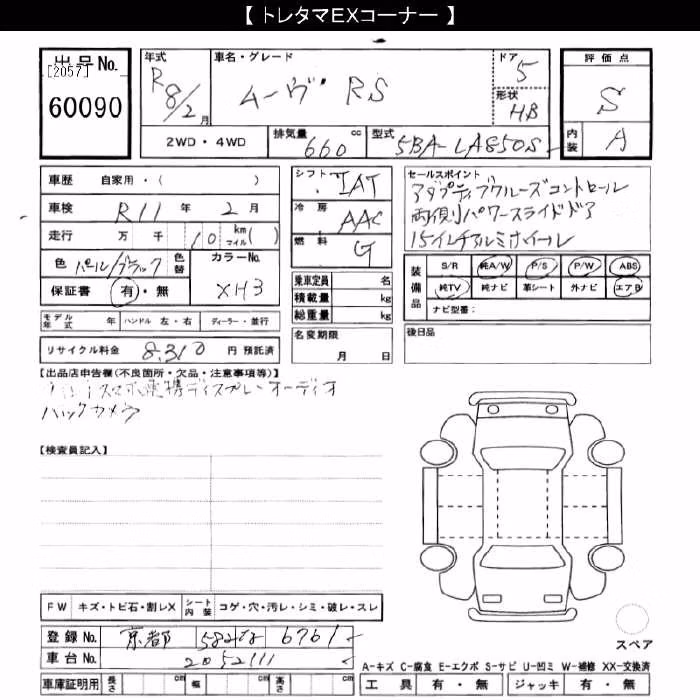 【 トレタマEXコーナー 】
出品No. [2057] 60090
年式 R8/2月
車名・グレード ムーヴ RS
ドア 5
形状 HB
評価点 S
内装 A
2WD・4WD 排気量 660 cc 型式 5BA-LA850S
車歴 自家用・( )
車検 R11年 2月
走行 万 千 10 km マイル( )
色 パール/ブラック 色替 カラーNo. XH3
保証書 有・無
モデル年式 年 ハンドル 左・右 ディーラー・並行
リサイクル料金 8,310 円 預託済
シフト IAT
冷房 AAC
燃料 G
乗車定員 名
積載量 kg
総重量 kg
名変期限 月 日
セールスポイント
アダプティブクルーズコントロール
両側パワースライドドア
15インチアルミホイール
装備品 S/R 純A/W P/S P/W ABS
純TV 純ナビ 革シート 外ナビ エアB
ナビ型番:
後日品
【出品店申告欄(不良箇所・欠品・注意事項等)】
ディスプレイオーディオ
バックカメラ
【検査員記入】
FW キズ・トビ石・割レX シート内装 コゲ・穴・汚レ・シミ・破レ・スレ
登録No. 京都 582 6761
車台No. 2052111
車庫証明用 長さ cm 幅 cm 高さ cm
スペア
A-キズ C-腐食 E-エクボ S-サビ U-凹ミ W-補修 XX-交換済
工具 有・無 ジャッキ 有・無